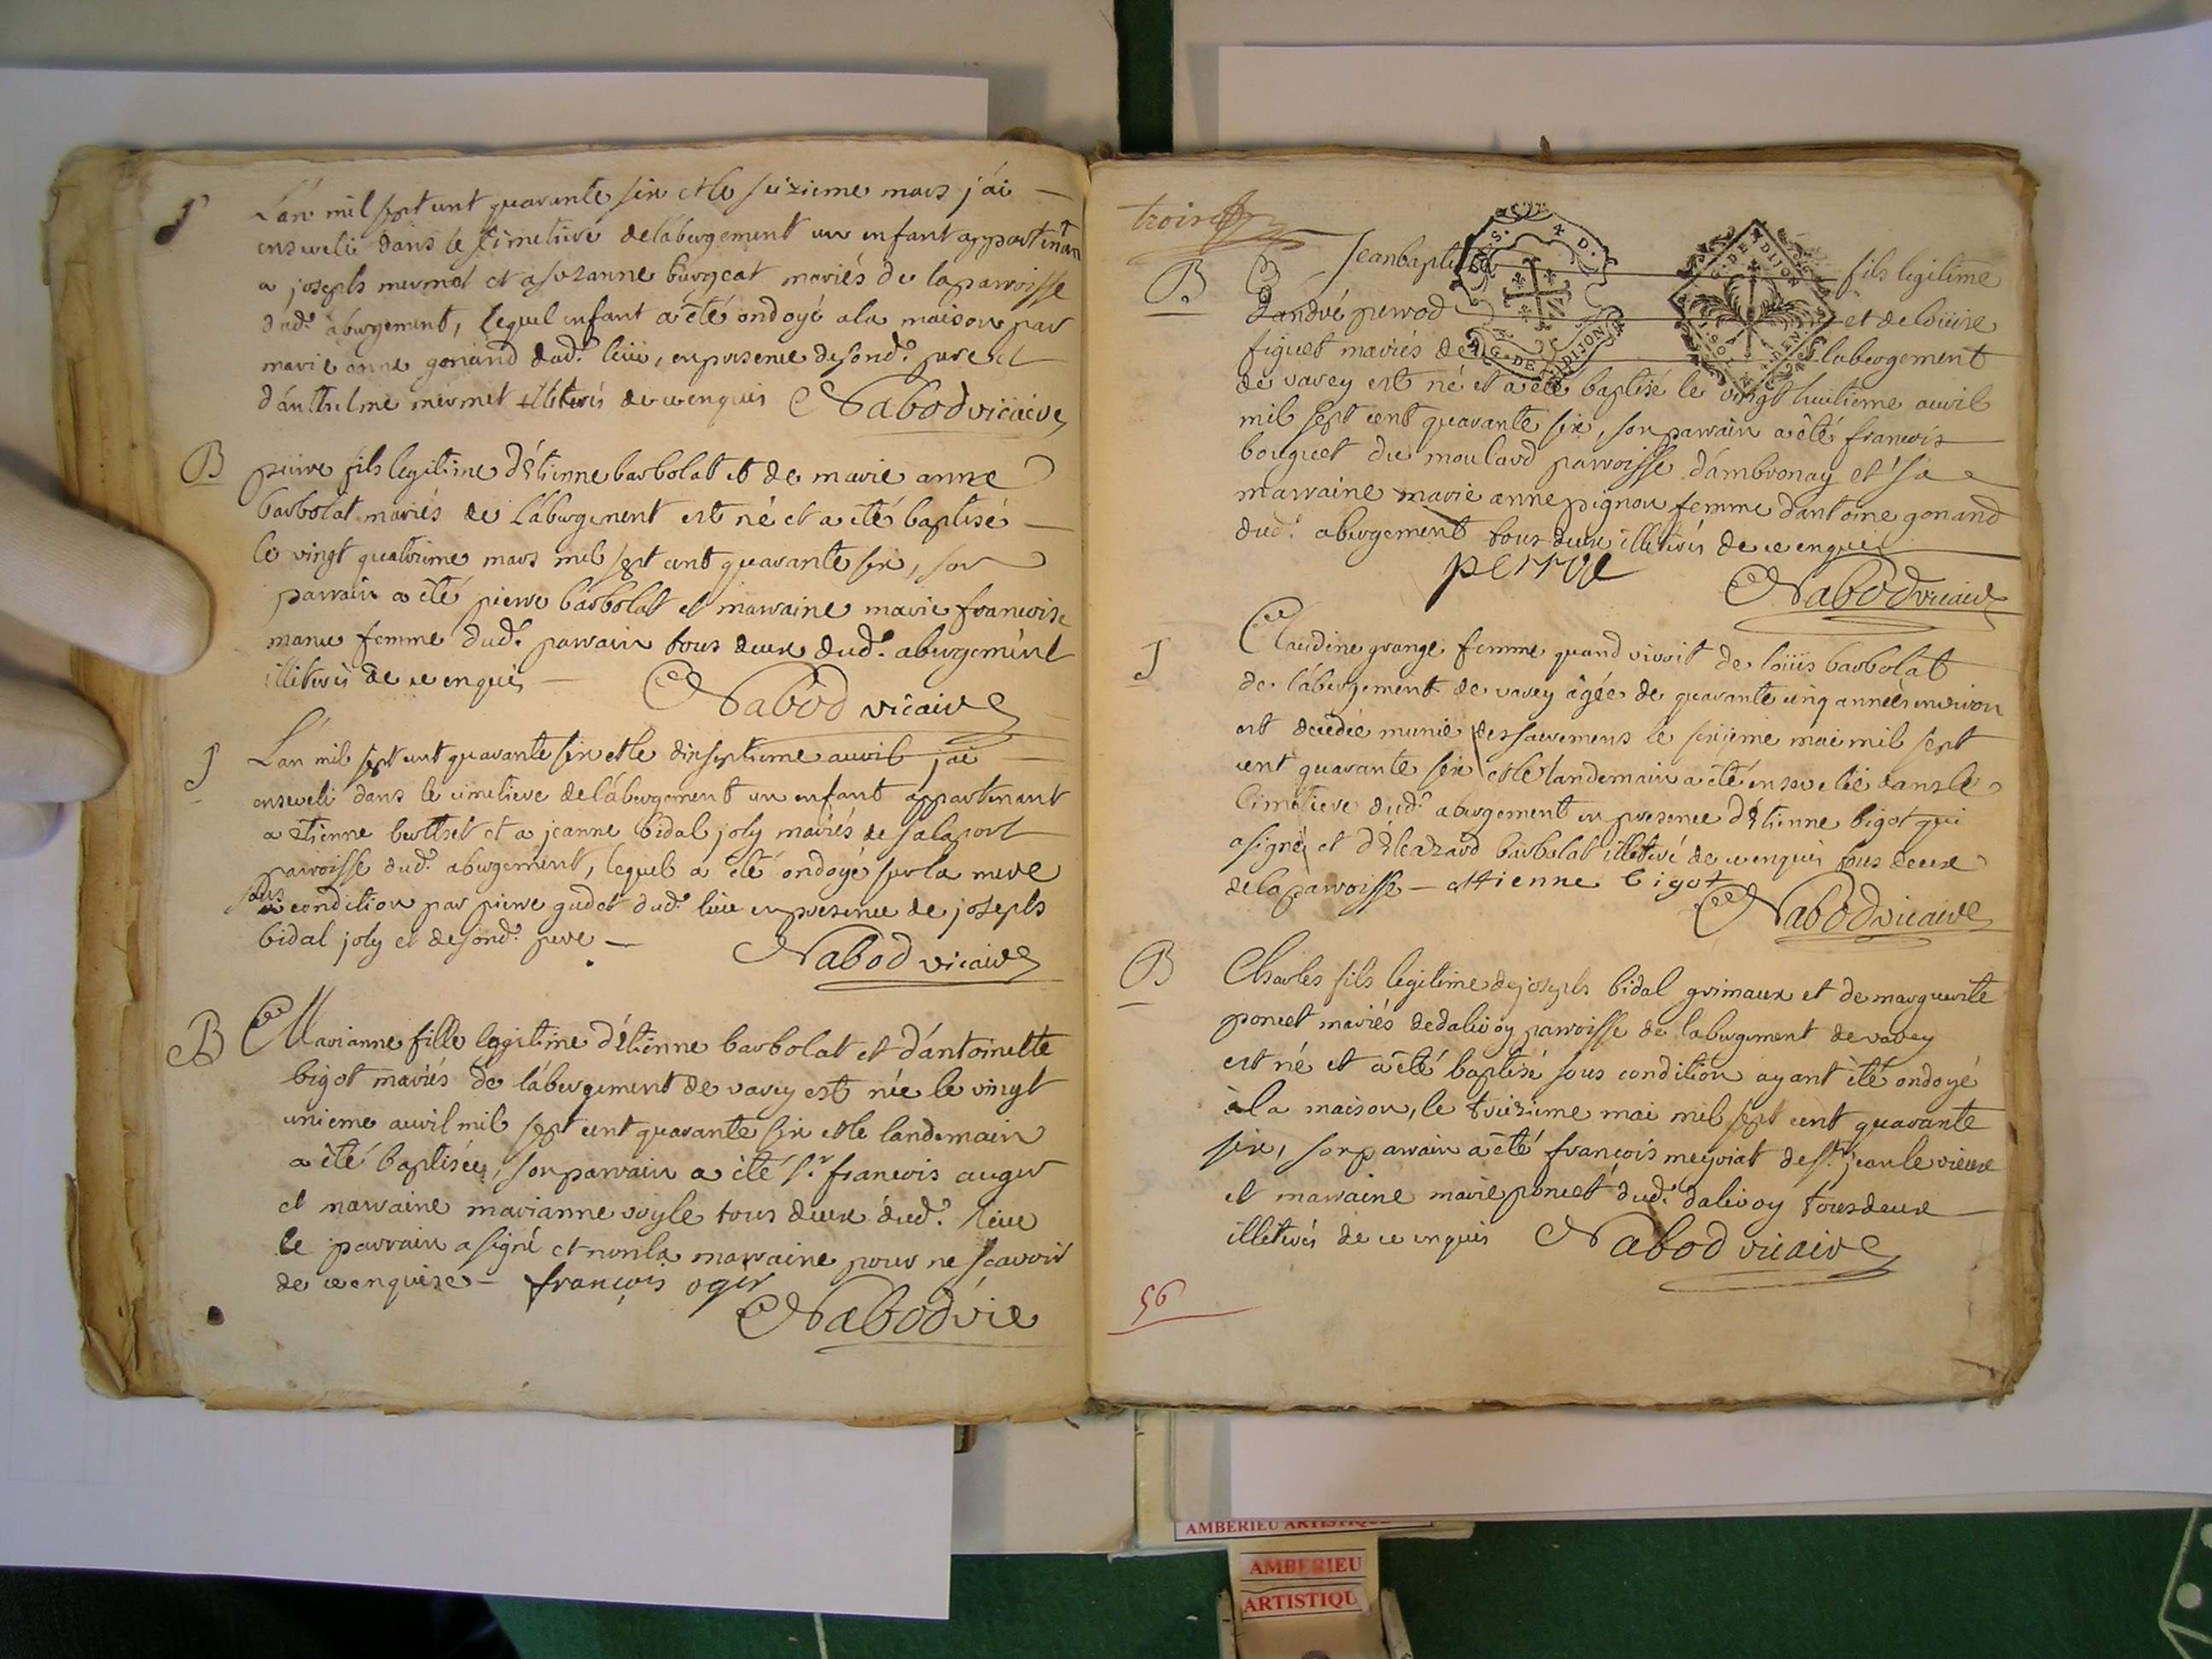 S
L'an mil sept cent quarante six et le seizieme mars j'ai
enseveli dans le cimetiere de l'abergement un enfant appartenan
a joseph mermet et a suzanne burgeat mariés de la parroisse
dud. abergement, lequel enfant a été ondoyé a la maison par
marie anne gonand dud. lieu, en presence de sond. pere et
d'anthelme mermet illiterés de ce enquis Nabod vicaire
B
pierre fils legitime d'étienne barbolat et de marie anne
barbolat mariés de l'abergement est né et a été baptisé
le vingt quatrieme mars mil sept cent quarante six, son
parrain a été pierre barbolat et marraine marie francoise
femme dud. parrain tous deux dud. abergement
illiterés de ce enquis Nabod vicaire
S
L'an mil sept cent quarante six et le dixseptieme avril j'ai
enseveli dans le cimetiere de l'abergement un enfant appartenant
a étienne berthet et a jeanne bidal joly mariés de
parroisse dud. abergement, lequel a été ondoyé sur la mere
sous condition par pierre gudet dud. lieu en presence de joseph
bidal joly et de sond. pere Nabod vicaire
B
Marianne fille legitime d'étienne barbolat et d'antoinette
bigot mariés de l'abergement de varey est née le vingt
unieme avril mil sept cent quarante six et le landemain
a été baptisée, son parrain a été sr. francois auger
et marraine marianne tous deux dud. lieu
le parrain a signé et non la marraine pour ne scavoir
de ce enquise françois ogir
Nabod vic
trois
B
Jean baptiste fils legitime
d'andré perrod et de loüise
figuet mariés de l'abergement
de varey est né et a été baptisé le vingt huitieme avril
mil sept cent quarante six, son parrain a été francois
bouquet du moulard parroisse d'ambronay et sa
marraine marie anne pignon femme d'antoine gonand
dud. abergement tous deux illiterés de ce enquis
G. DE DIJON
Nabod vicaire
S
Claudine grange femme quand vivoit de loüis barbolat
de l'abergement de varey âgée de quarante cinq années environ
est decedée munie des sacremens le sixieme mai mil sept
cent quarante six et le landemain a été ensevelie dans le
cimetiere dud. abergement en presence d'étienne bigot qui
a signé et d'éleazard barbolat illiteré de ce enquis tous deux
de la parroisse ettienne bigot
Nabod vicaire
B
Charles fils legitime de joseph bidal grimaux et de marguerite
poncet mariés de dalivoy parroisse de l'abergement de varey
est né et a été baptisé sous condition ayant été ondoyé
à la maison, le treizieme mai mil sept cent quarante
six, son parrain a été françois meyriat de st. jean le vieux
et marraine marie poncet dud. dalivoy tous deux
illiterés de ce enquis Nabod vicaire
56
AMBERIEU ARTISTIQUE
AMBERIEU
ARTISTIQU